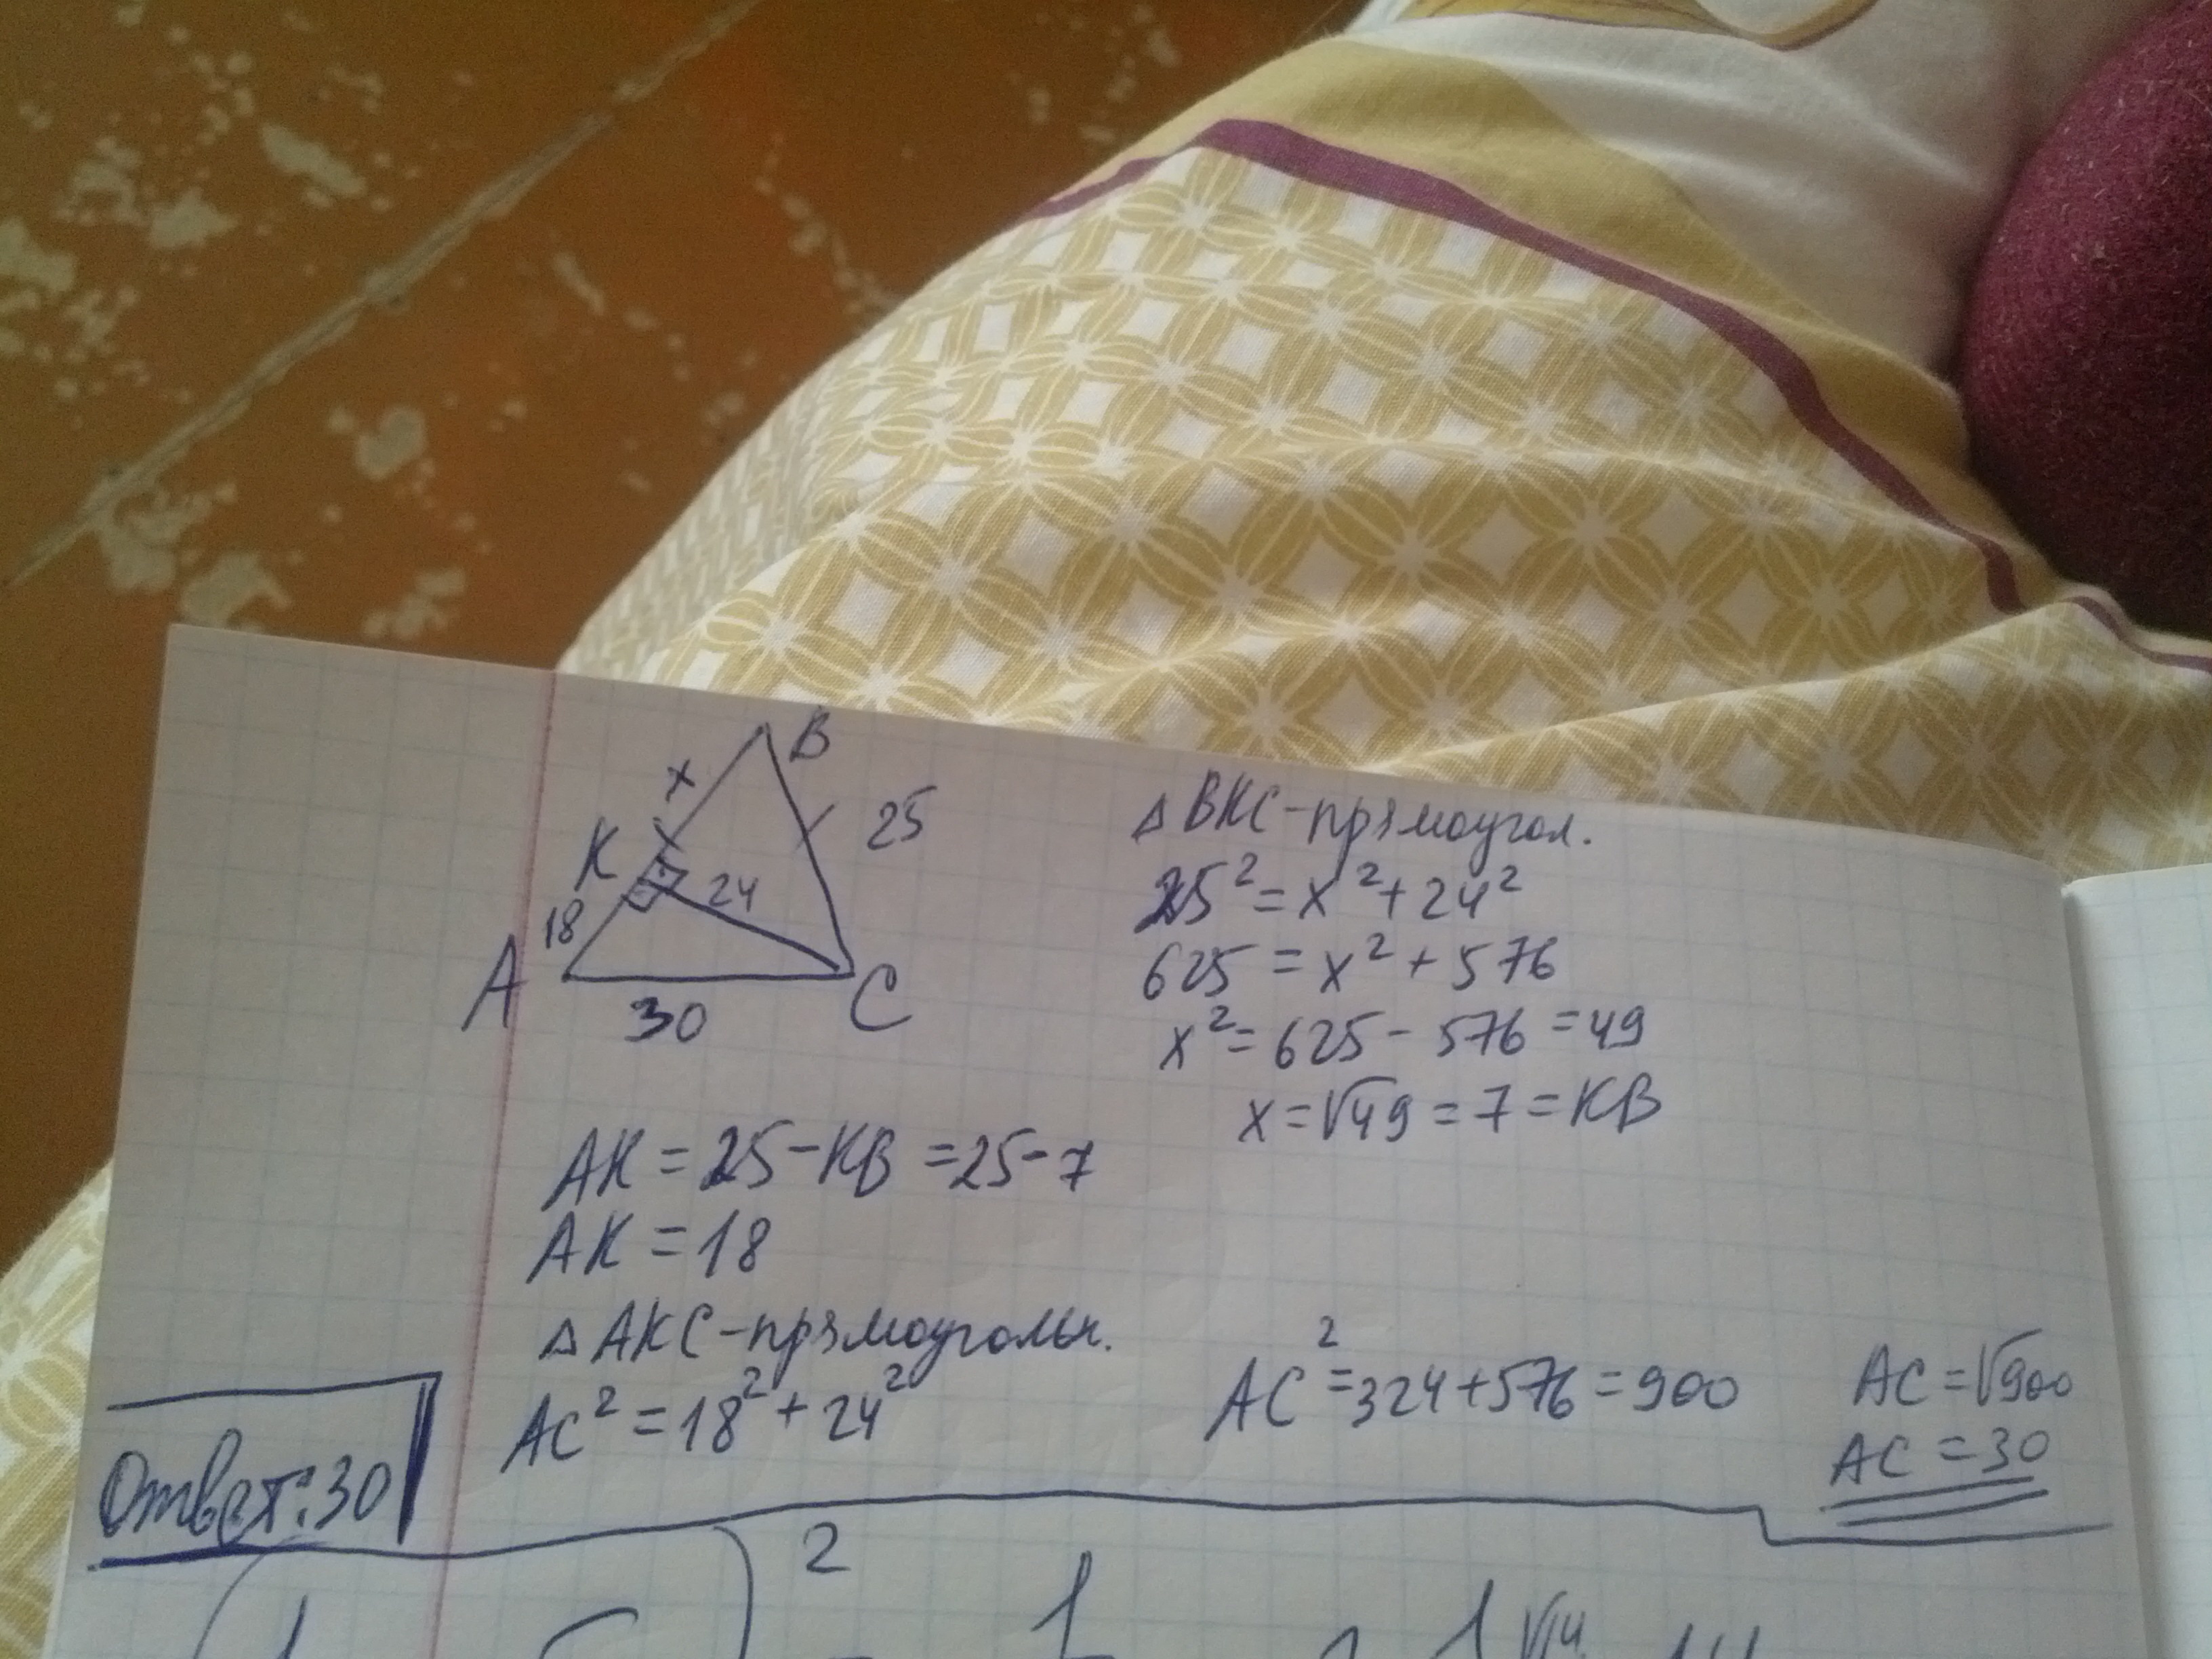 B
x
25
K
24
18
A
C
30
△ BKC-прямоугол.
25² = x² + 24²
625 = x² + 576
x² = 625 - 576 = 49
x = √49 = 7 = KB
AK = 25 - KB = 25 - 7
AK = 18
△ AKC-прямоугольн.
AC² = 18² + 24²
AC² = 324 + 576 = 900
AC = √900
AC = 30
Ответ: 30
2